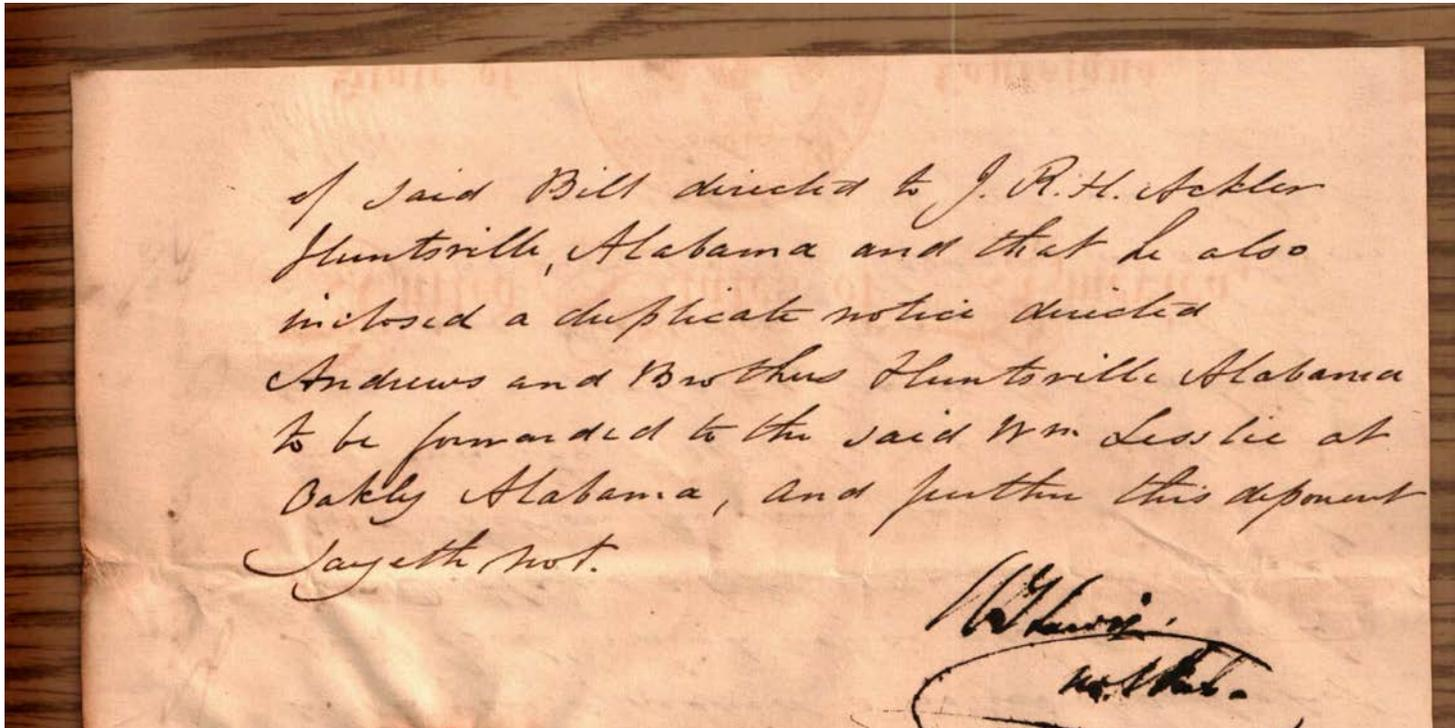 of said Bill directed to J. R. H. Acklen
Huntsville, Alabama and that he also
inclosed a duplicate notice directed
Andrews and Brothers Huntsville Alabama
to be forwarded to the said Wm Lesslie at
Oakly Alabama, and further this deponent
Sayeth not.